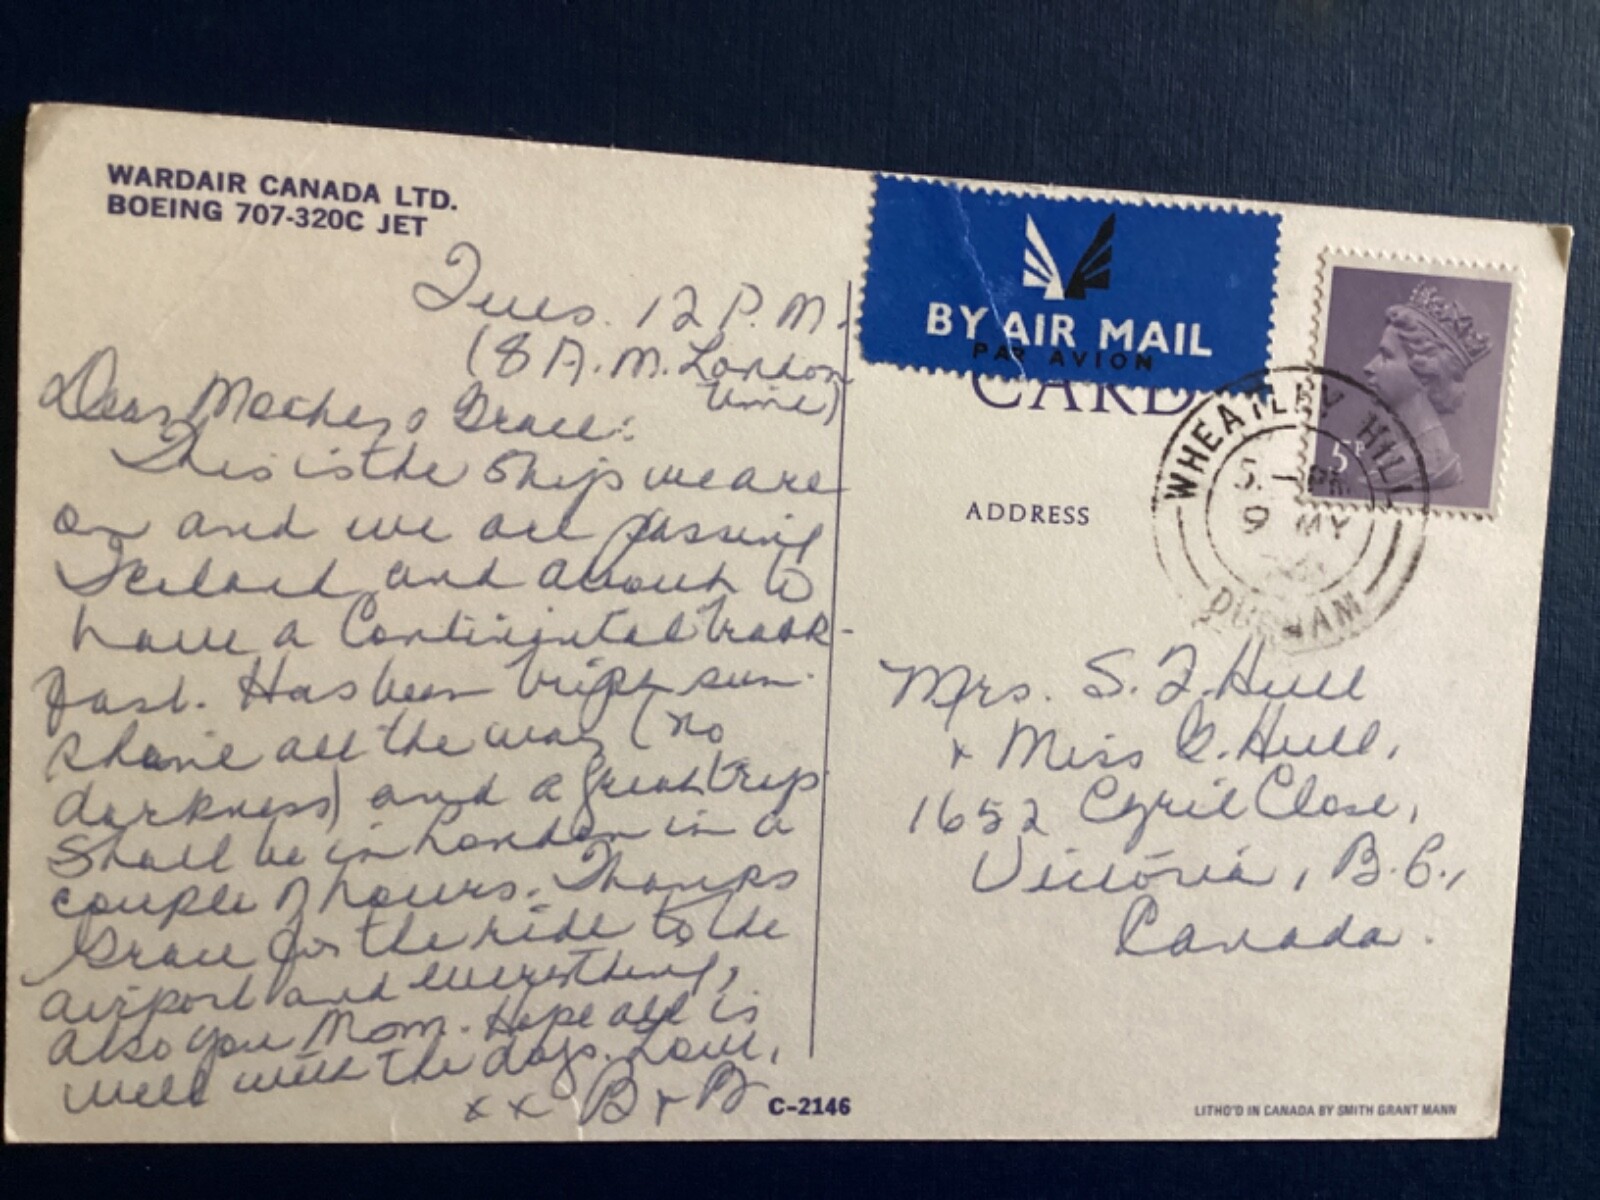 WARDAIR CANADA LTD.
BOEING 707-320C JET
Tues. 12 P.M.
(8 A.M. London
time)
Dear Mother & Grace:
This is the ship we are
on and we are passing
Iceland and about to
have a Continental break-
fast. Has been bright sun-
shine all the way (no
darkness) and a great trip
Shall be in London in a
couple of hours. Thanks
Grace for the ride to the
airport and everything,
also you Mom. Hope all is
well with the dogs. Love,
xx B + B
C-2146
BY AIR MAIL
PAR AVION
CARD
ADDRESS
5P
WHEATLEY HILL
5. - PM
9 MY
DURHAM
Mrs. S. F. Hull
+ Miss G. Hull,
1652 Cyril Close,
Victoria, B.C.,
Canada.
LITHO'D IN CANADA BY SMITH GRANT MANN